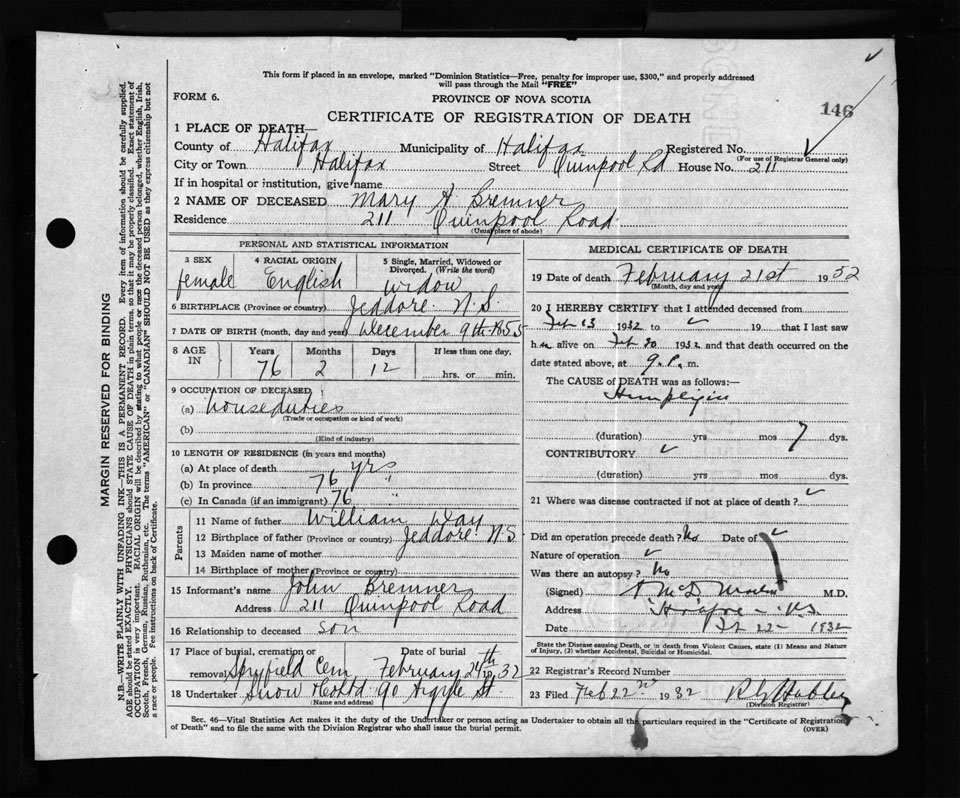 This form if placed in an envelope, marked "Dominion Statistics—Free, penalty for improper use, $300," and properly addressed
will pass through the Mail "FREE"
FORM 6.
PROVINCE OF NOVA SCOTIA
146
CERTIFICATE OF REGISTRATION OF DEATH
1 PLACE OF DEATH—
County of Halifax Municipality of Halifax Registered No.
(For use of Registrar General only)
City or Town Halifax Street Quinpool Rd House No. 211
If in hospital or institution, give name
2 NAME OF DECEASED Mary A Bremner
Residence 211 Quinpool Road
(Usual place of abode)
PERSONAL AND STATISTICAL INFORMATION
3 SEX
female
4 RACIAL ORIGIN
English
5 Single, Married, Widowed or
Divorced. (Write the word)
widow
6 BIRTHPLACE (Province or country) Jeddore N.S.
7 DATE OF BIRTH (month, day and year) December 9th 1855
8 AGE
IN
Years
76
Months
2
Days
12
If less than one day,
hrs. or min.
9 OCCUPATION OF DECEASED
(a) house duties
(Trade or occupation or kind of work)
(b)
(Kind of industry)
10 LENGTH OF RESIDENCE (in years and months)
(a) At place of death yrs
(b) In province 76 "
(c) In Canada (if an immigrant) 76 "
Parents
11 Name of father William Day
12 Birthplace of father (Province or country) Jeddore N.S.
13 Maiden name of mother
14 Birthplace of mother (Province or country)
15 Informant's name John Bremner
Address 211 Quinpool Road
16 Relationship to deceased son
17 Place of burial, cremation or
removal Spryfield Cem
Date of burial
February 24th 1932
18 Undertaker Snow & Co Ltd 90 Argyle St.
(Name and address)
MEDICAL CERTIFICATE OF DEATH
19 Date of death February 21st 1932
(Month, day and year)
20 I HEREBY CERTIFY that I attended deceased from
Feb 13 1932 to 19 that I last saw
h er alive on Feb 20 1932 and that death occurred on the
date stated above, at 9 P. m.
The CAUSE of DEATH was as follows:—
(duration) yrs mos 7 dys.
CONTRIBUTORY
(duration) yrs mos dys.
21 Where was disease contracted if not at place of death?
Did an operation precede death? No Date of
Nature of operation
Was there an autopsy? No
(Signed) M.D.
Address Halifax N.S.
Date Feb 22 1932
State the Disease causing Death, or in death from Violent Causes, state (1) Means and Nature of
Injury, (2) whether Accidental, Suicidal or Homicidal.
22 Registrar's Record Number
23 Filed Feb 22nd 1932
(Division Registrar)
Sec. 46—Vital Statistics Act makes it the duty of the Undertaker or person acting as Undertaker to obtain all the particulars required in the "Certificate of Registration
of Death" and to file the same with the Division Registrar who shall issue the burial permit.
(OVER)
MARGIN RESERVED FOR BINDING
N.B.—WRITE PLAINLY WITH UNFADING INK—THIS IS A PERMANENT RECORD. Every item of information should be carefully supplied.
AGE should be stated EXACTLY. PHYSICIANS should STATE CAUSE OF DEATH in plain terms, so that it may be properly classified. Exact statement of
OCCUPATION is very important. RACIAL ORIGIN will be described by stating to what people or race the deceased person belonged, whether English, Irish,
Scotch, French, German, Russian, Ruthenian, etc. The terms "AMERICAN" or "CANADIAN" SHOULD NOT BE USED as they express citizenship but not
a race or people. See instructions on back of Certificate.